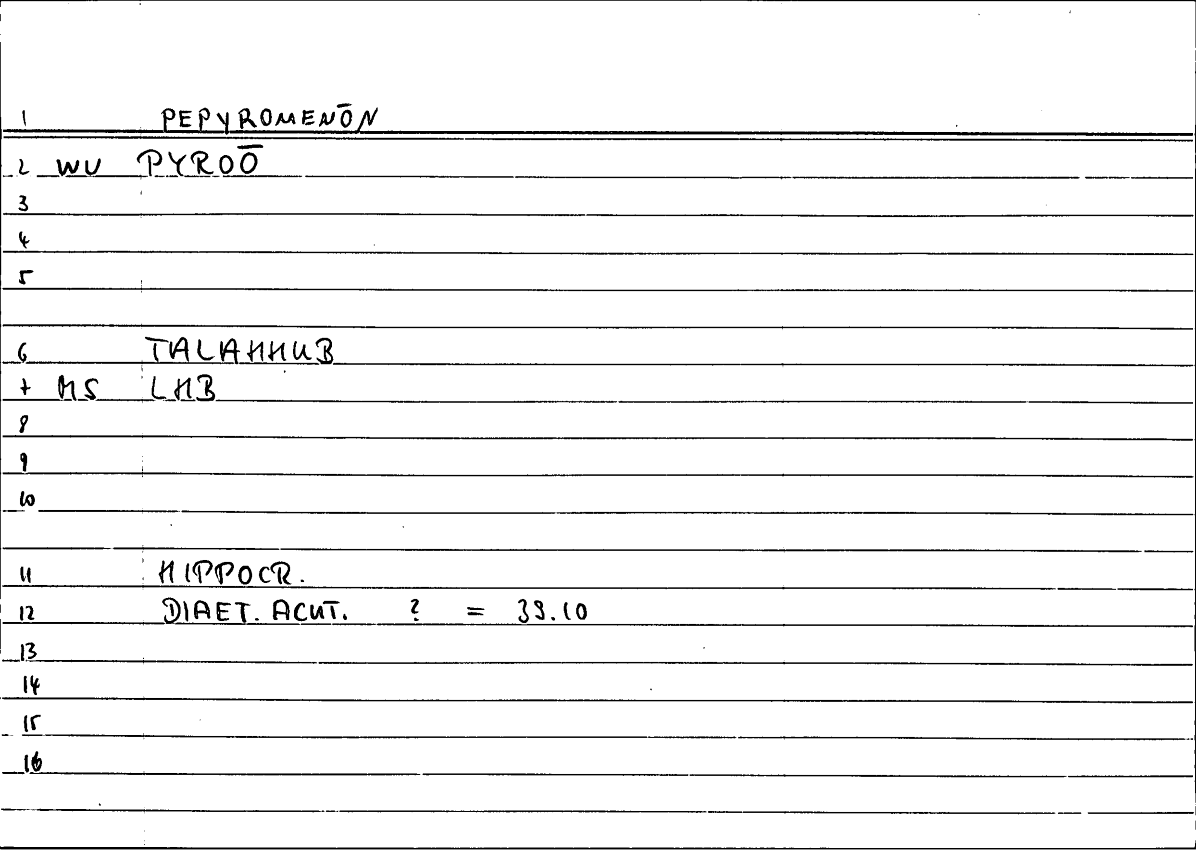 1 PEPYROMENŌN
2 WU PYROŌ
3
4
5
6 TALAHHUB
7 MS LHB
8
9
10
11 HIPPOCR.
12 DIAET. ACUT. ? = 39.10
13
14
15
16